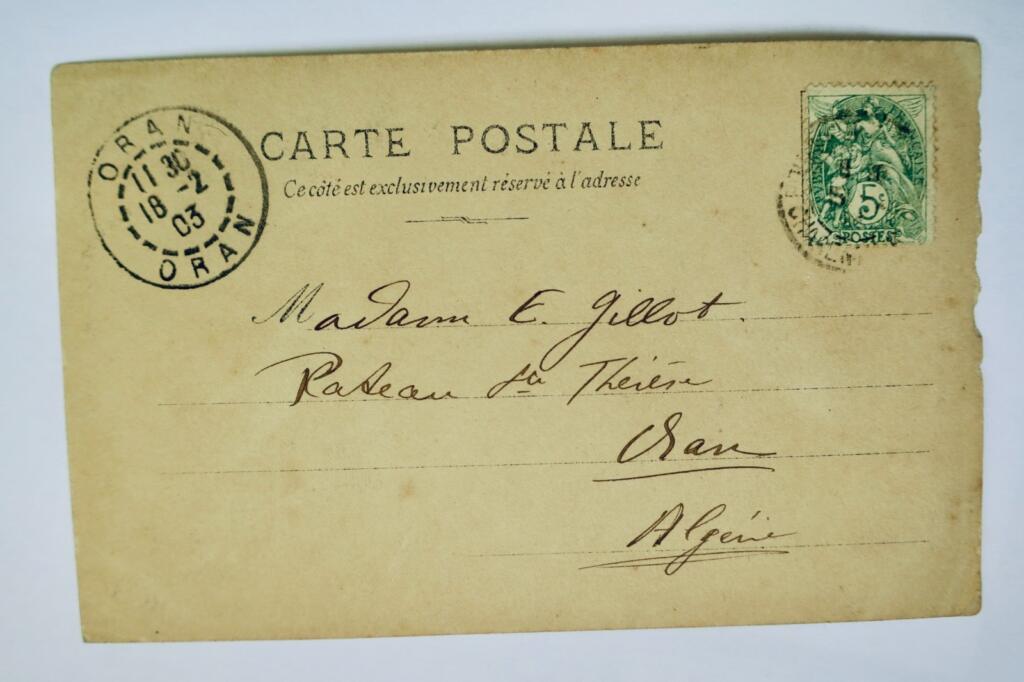 CARTE POSTALE
Ce côté est exclusivement réservé à l'adresse
ORAN
11 30
18 -2
03
ORAN
5
POSTES
Madame E. Gillot.
Plateau Ste Thérèse
Oran
Algérie